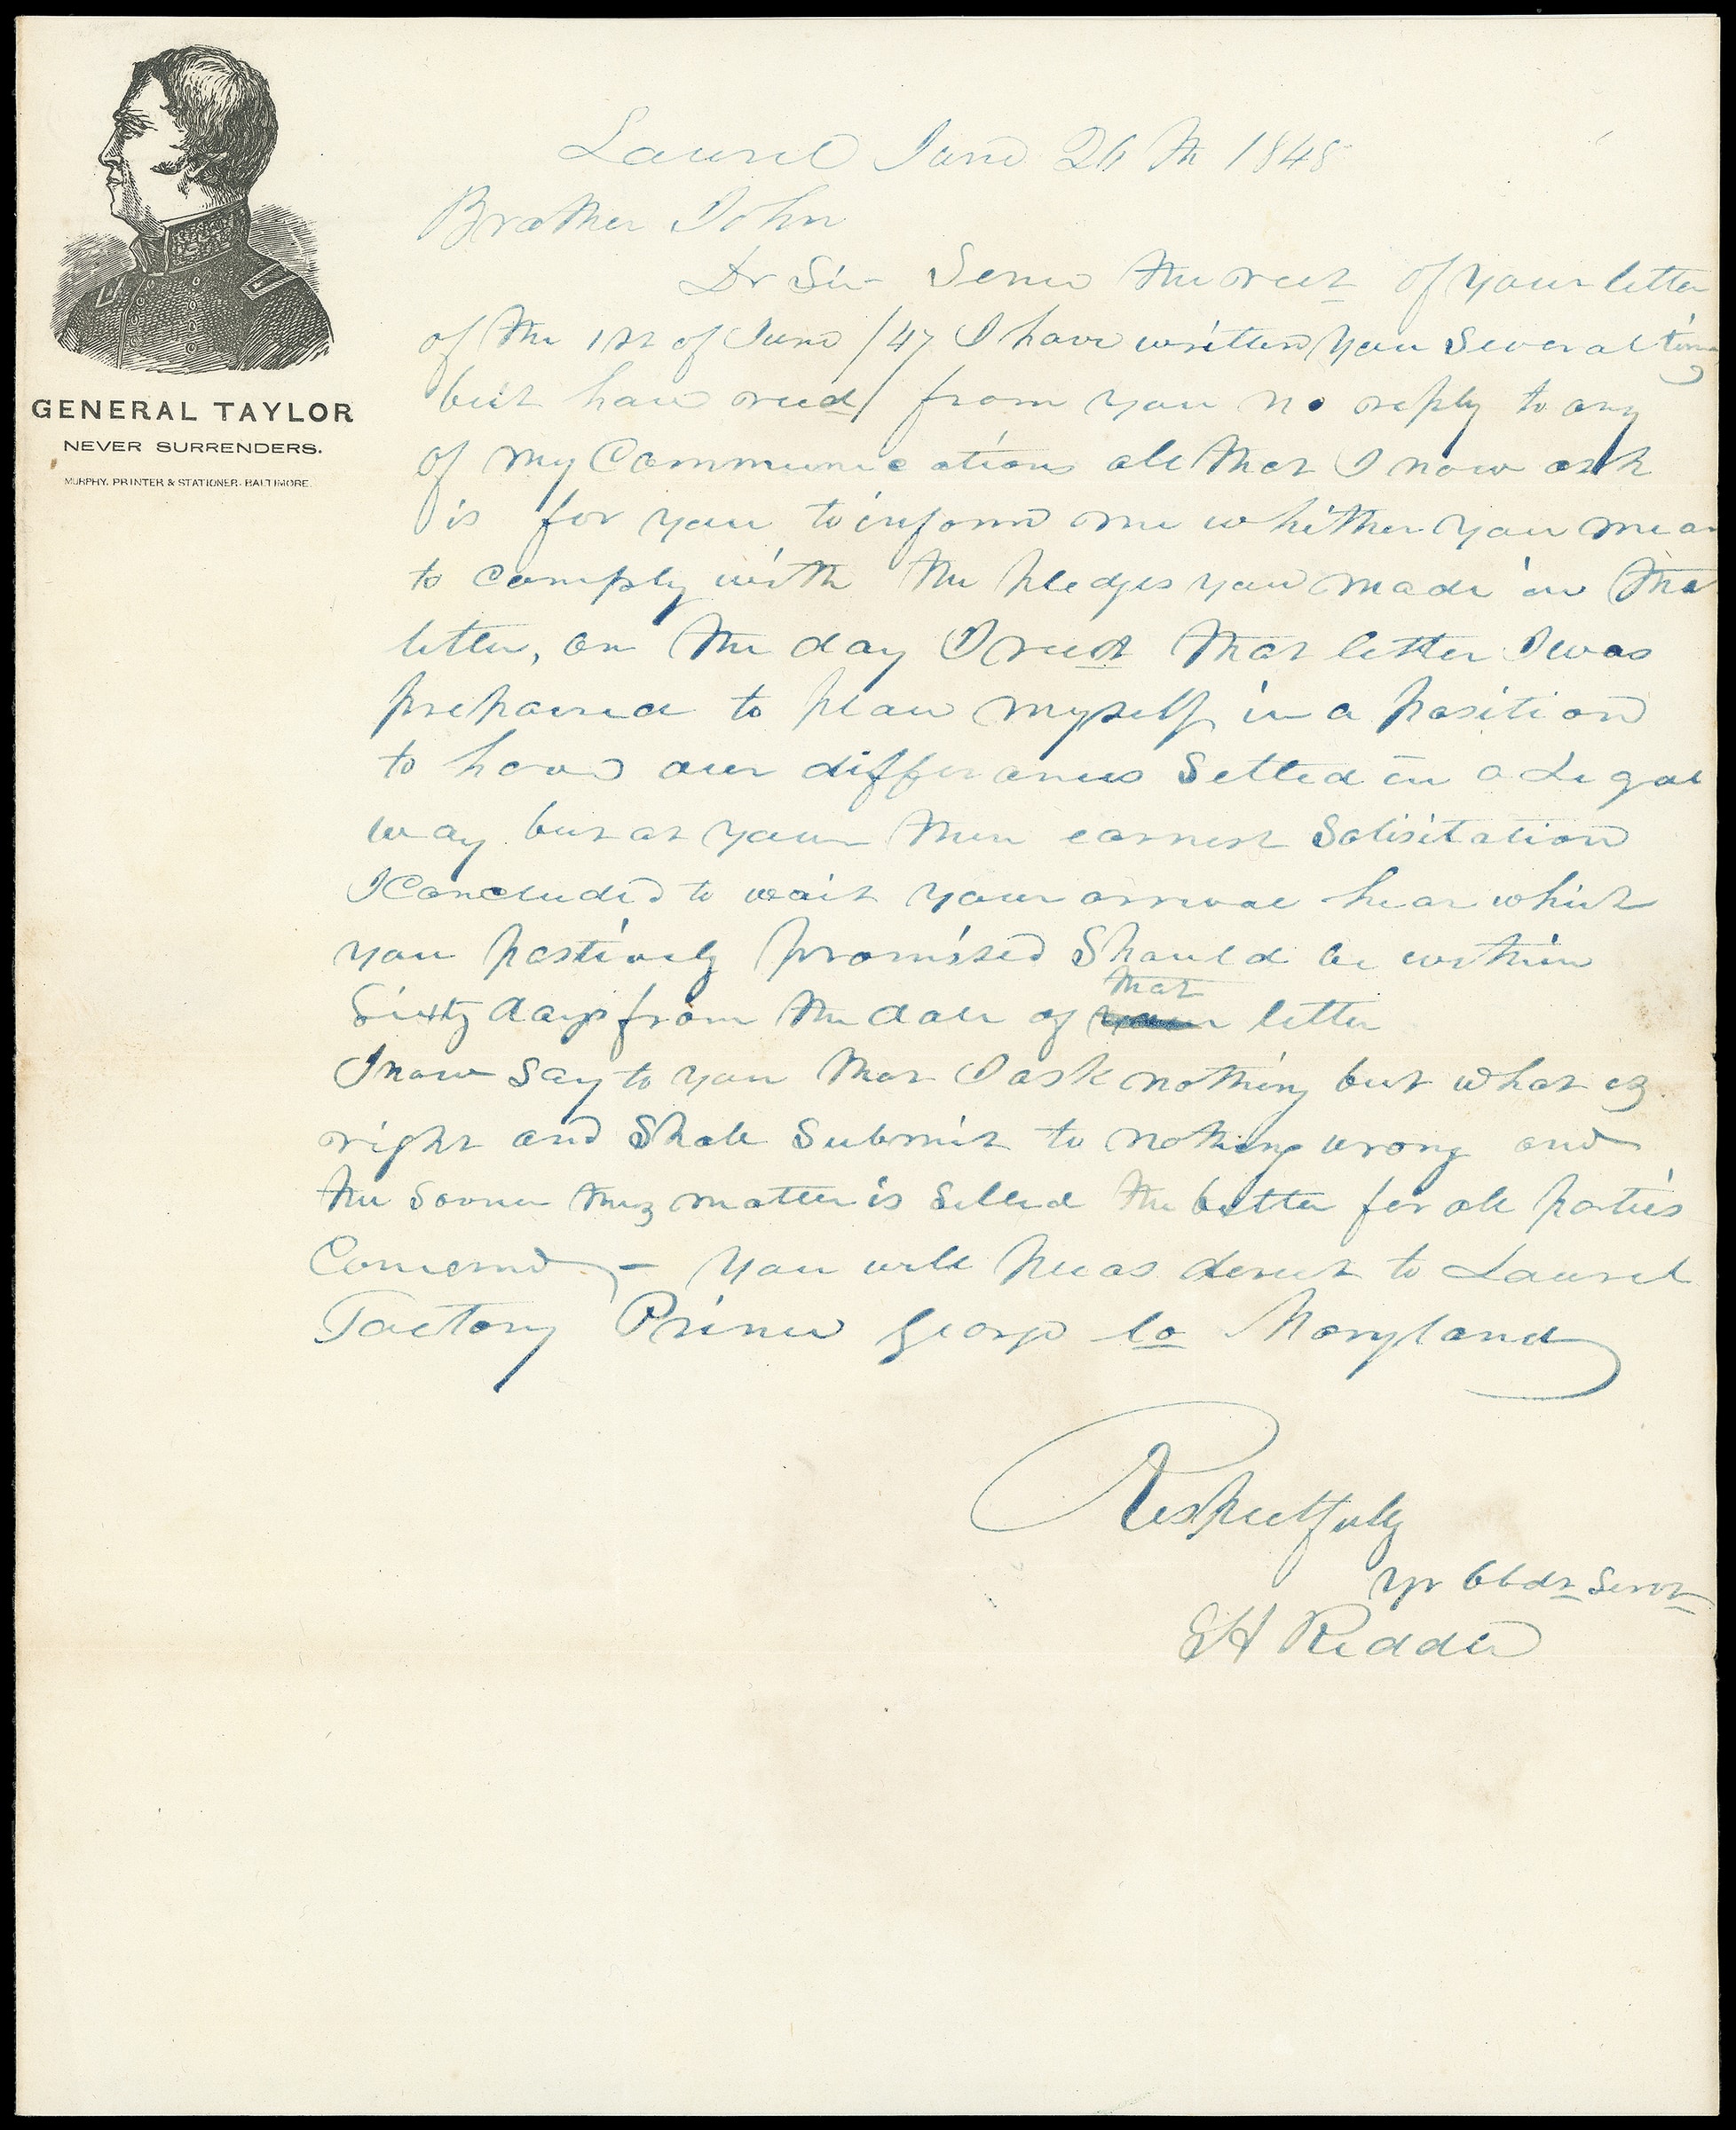 GENERAL TAYLOR
NEVER SURRENDERS.
MURPHY, PRINTER & STATIONER, BALTIMORE.
Laurel June 26th 1848
Brother John
Dr Sir Sence the rect of your letter
of the 1st of June /47 I have written you several times
but have recd from you no reply to any
of my Communications all that I now ask
is for you to inform me whither you mean
to comply with the pledges you made in that
letter, on the day I recd that letter I was
prepaired to place myself in a position
to have our differances Setled in a Legal
way but at your then earnest Solisitation
I Concluded to wait your arrival hear which
you postively promised Should be within
Sixty days from the date of that letter
I now say to you that I ask nothing but what is
right and Shall Submit to nothing wrong and
the sooner this matter is setled the better for all parties
Concernd - you will pleas direct to Laurel
Factory Prince George Co Maryland
Respectfully
Yr Obdt Servt
H Ridder